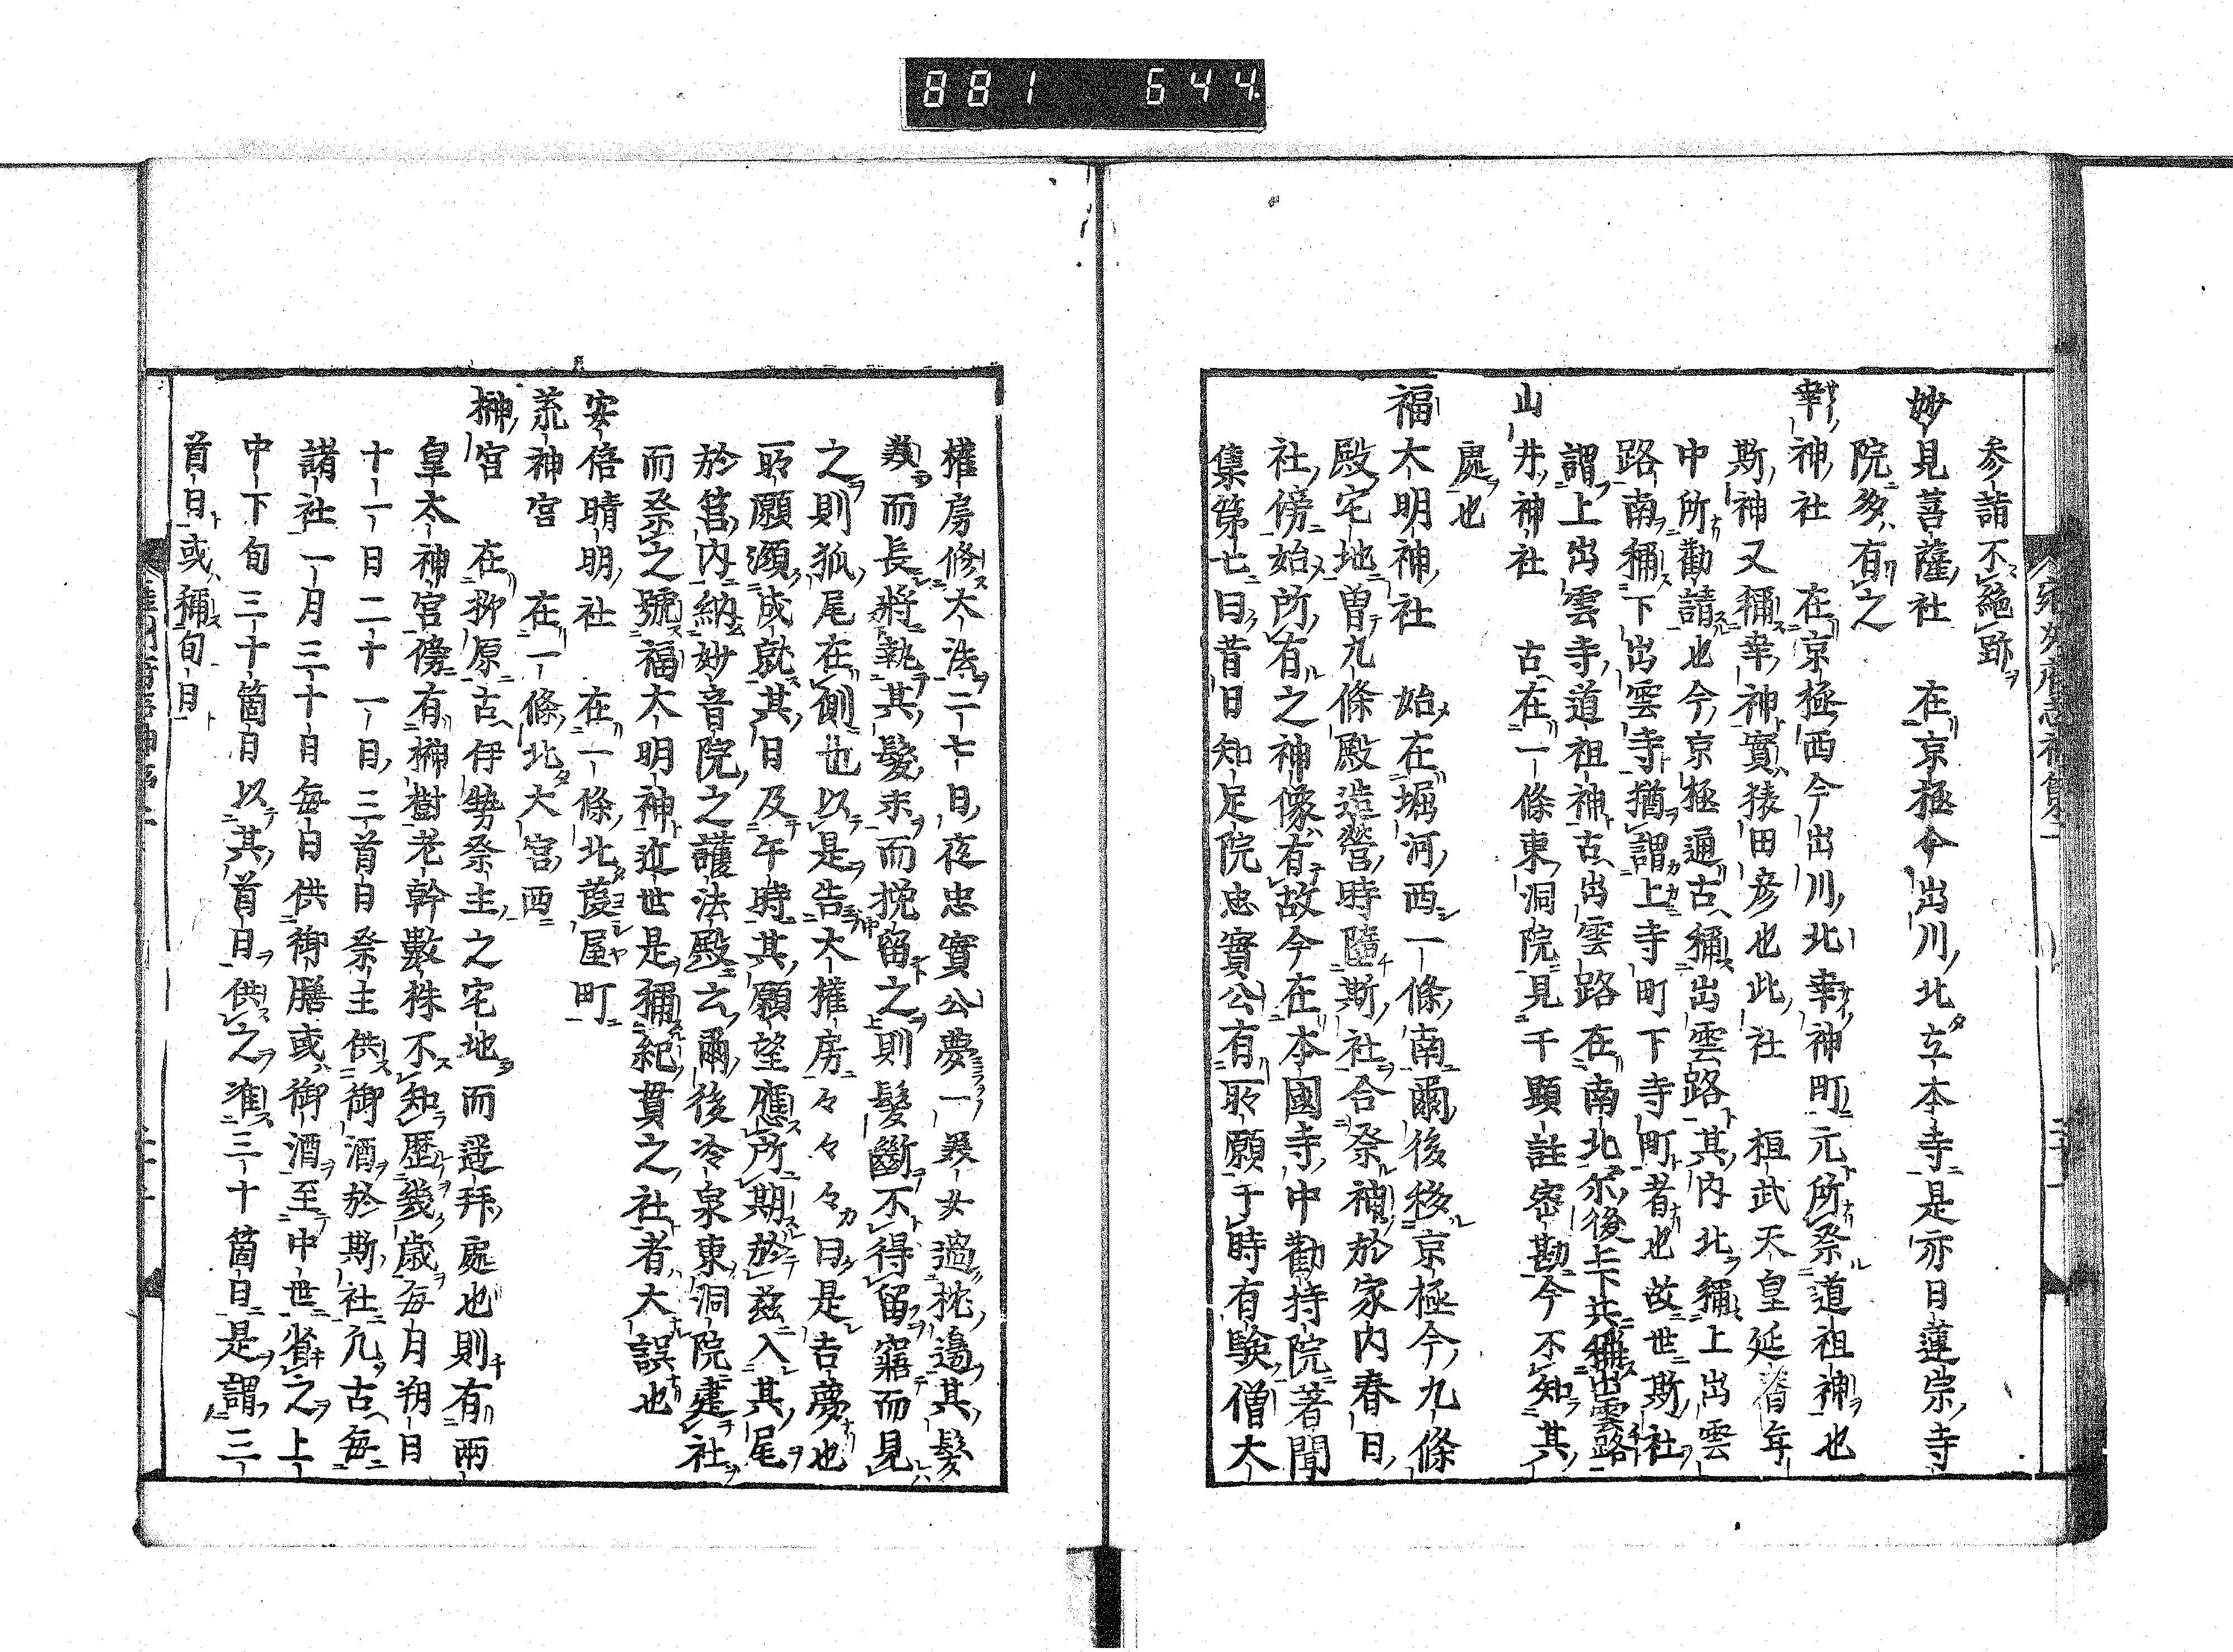 881 644
参詣不絶跡
妙見菩薩社 在京極今出川北立本寺是亦日蓮宗寺
院多有之
幸神社 在京極西今出川北幸神町元所祭道祖神也
斯神又稱幸神實猿田彦也此社 桓武天皇延暦年
中所勸請也今京極通古稱出雲路其内北稱上出雲
路南稱下出雲寺猶謂上寺町下寺町者也故世斯社
謂上出雲寺道祖神古出雲路在南北尓後上下共稱出雲路
山井神社 古在一條東洞院見千顕註密勘今不知其
處也
福大明神社 始在堀河西一條南爾後移京極今九條
殿宅地曽九條殿造營時隨斯社合祭神於家内春日
社傍始所有之神像有故今在本國寺中勸持院著聞
集第七曰昔日知足院忠實公有所願于時有驗僧大
權房修大法二七日夜忠實公夢一美女過枕邊其髮
美而長將執其髮末而挽留之則髮斷不得留寤而見
之則狐尾在側也以是告大權房々々々曰是吉夢也
所願頗成就其日及午時其願望應所期於茲入其尾
於筥内納妙音院之護法殿云爾後冷泉東洞院建社
而祭之號福大明神近世是稱紀貫之社者大誤也
安倍晴明社 在一條北葭屋町
荒神宮 在一條北大宮西
榊宮 在柳原古伊勢祭主之宅地而遥拜處也則有兩
皇太神宮傍有榊樹老幹數株不知歴幾歳毎月朔日
十一日二十一日三首日祭主供御酒於斯社凢古毎
諸社一月三十日毎日供御膳或御酒至中世省之上
中下旬三十箇日以其首日供之准三十箇日是謂三
首日或稱旬日